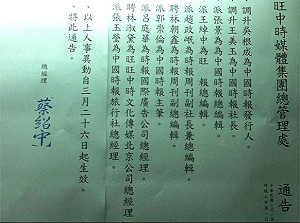 旺中時媒體集團總管理處 通告
調升吳根成為中國時報發行人。
調升王美玉為中國時報社長。
派張景為為中國時報總編輯。
派王綽中為旺 報總編輯。
派趙政岷為時報周刊社長兼總編輯。
聘林朝鑫為時報周刊副總編輯。
派郭崇倫為中國時報主筆。
派呂庭華為時報國際廣告公司總經理。
聘林淑黛為旺旺中時文化傳媒北京公司總經理
派張玉瑩為中國時報旅行社總經理。
、以上人事異動自三月二十六日起生效。
、特此通告。
總經理
蔡紹中